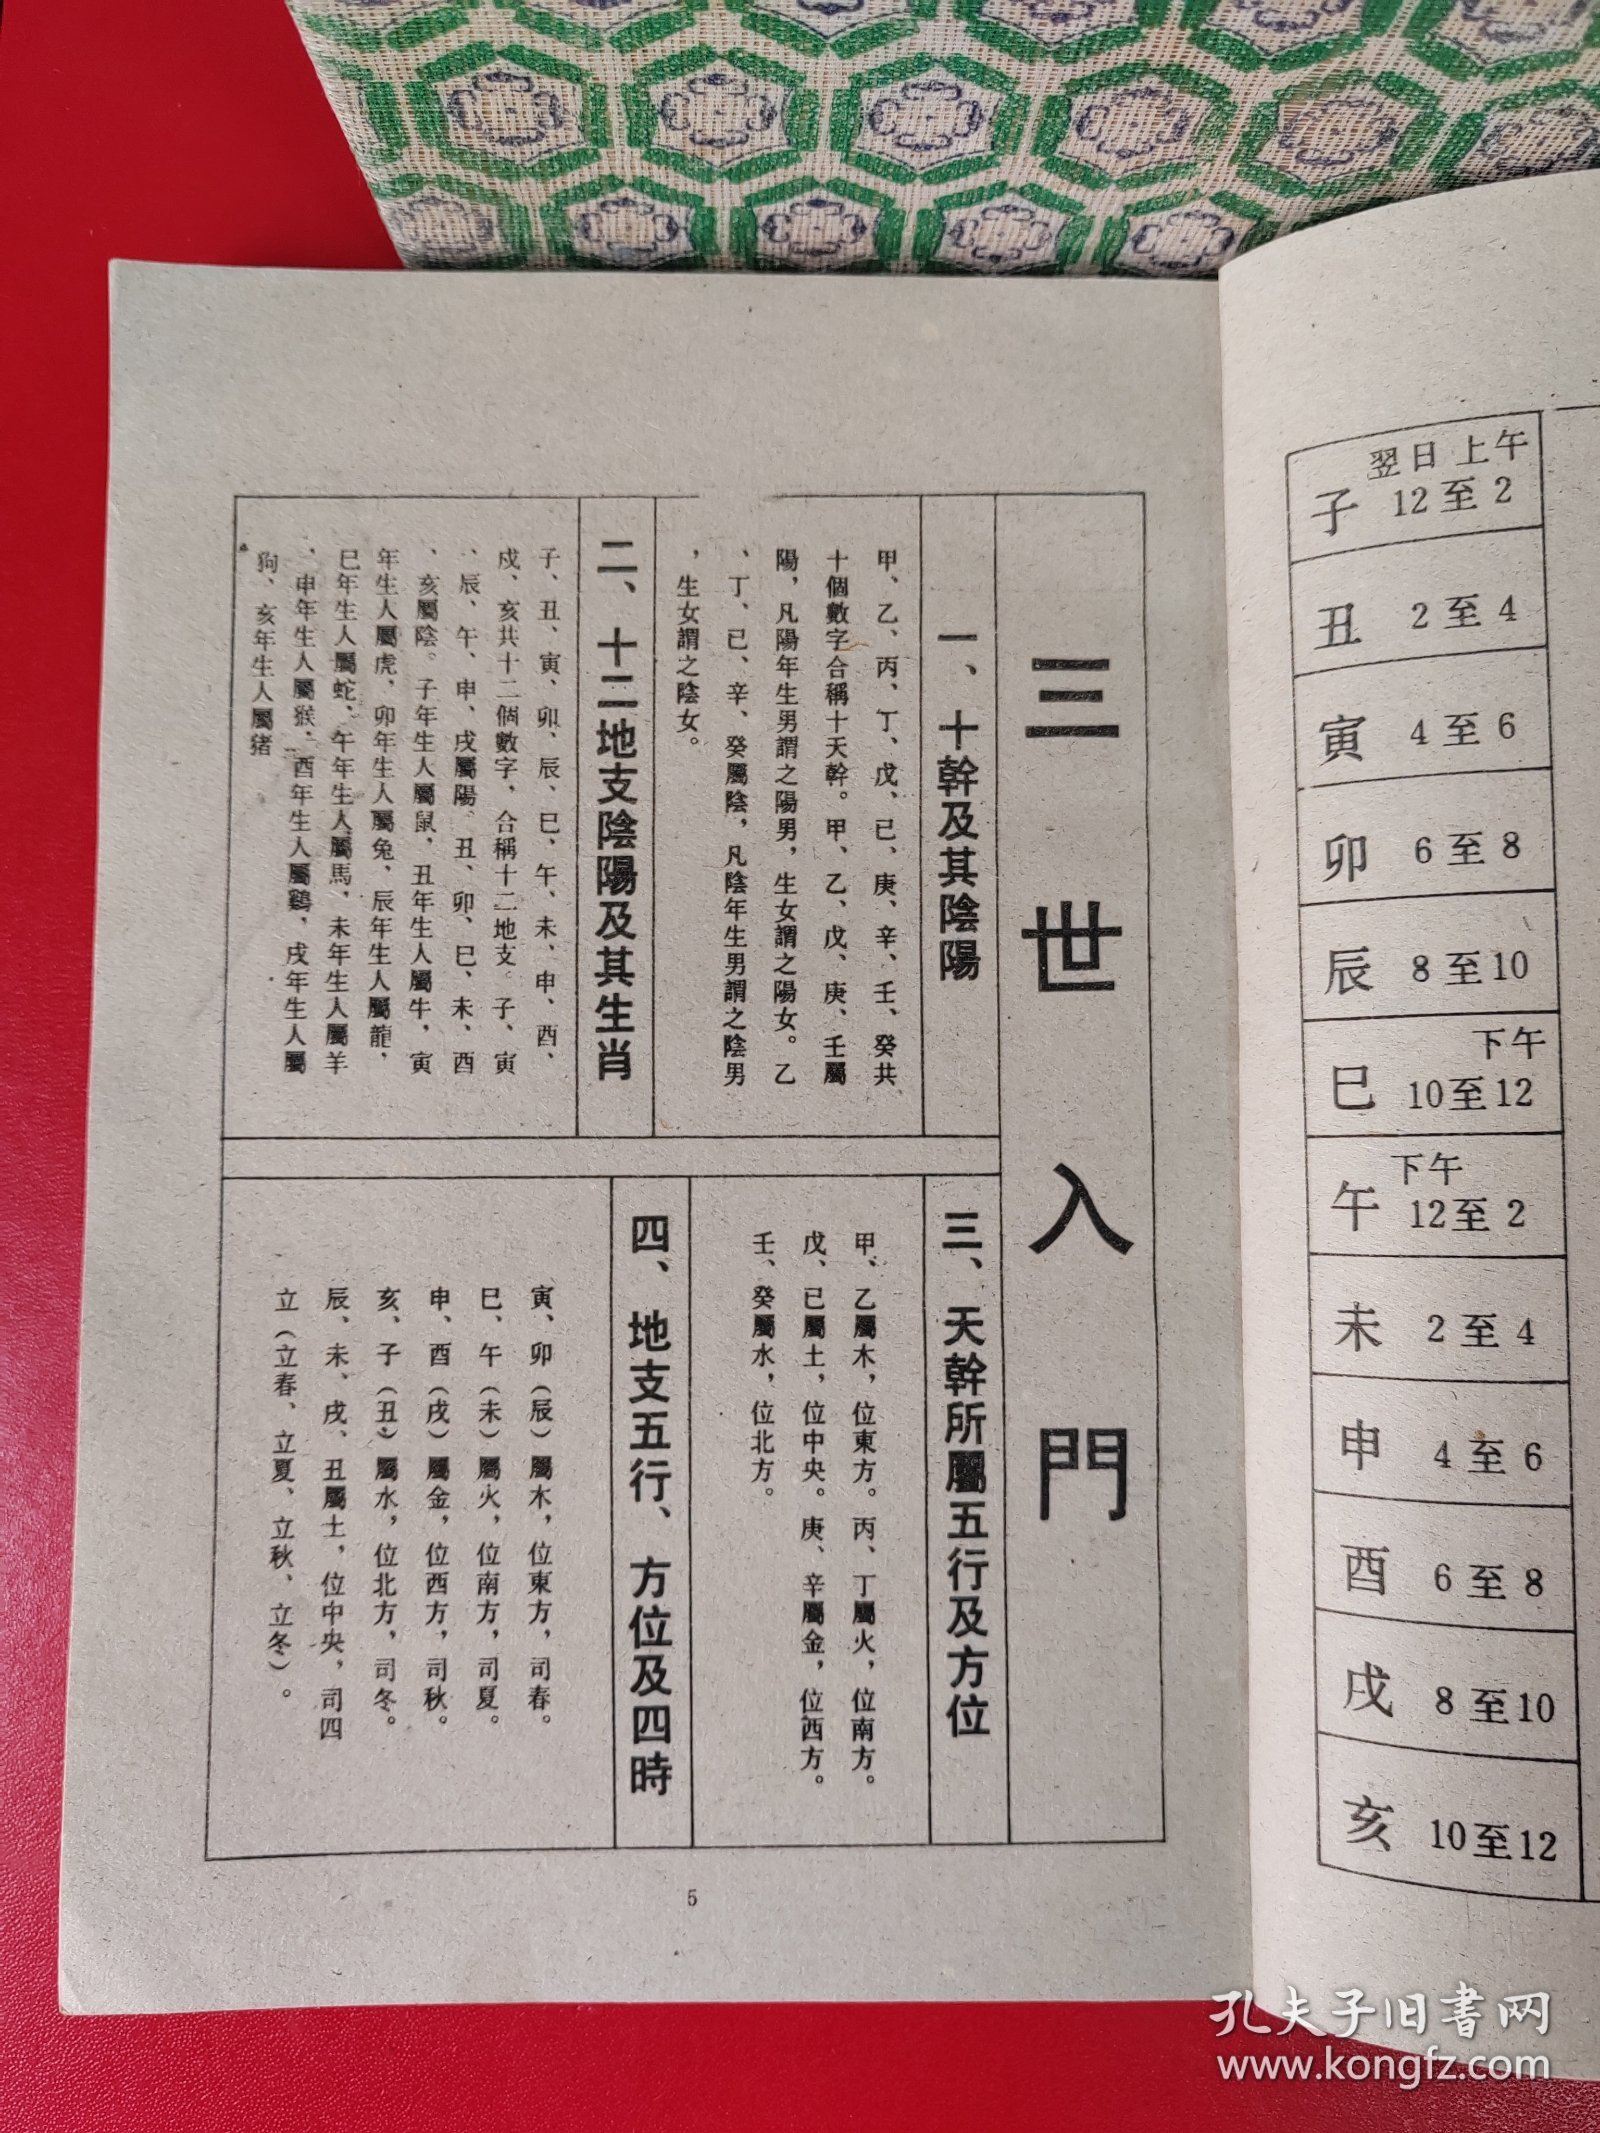 三世入門
一、十幹及其陰陽
甲、乙、丙、丁、戊、己、庚、辛、壬、癸共
十個數字合稱十天幹。甲、乙、戊、庚、壬屬
陽，凡陽年生男謂之陽男，生女謂之陽女。乙
、丁、已、辛、癸屬陰，凡陰年生男謂之陰男
，生女謂之陰女。
二、十二地支陰陽及其生肖
子、丑、寅、卯、辰、巳、午、未、申、酉、
戍、亥共十二個數字，合稱十二地支。子、寅
、辰、午、申、戌屬陽。丑、卯、巳、未、酉
、亥屬陰。子年生人屬鼠，丑年生人屬牛，寅
年生人屬虎，卯年生人屬兔，辰年生人屬龍，
巳年生人屬蛇、午年生人屬馬，未年生人屬羊
、申年生人屬猴，酉年生人屬鷄，戌年生人屬
狗、亥年生人屬猪
三、天幹所屬五行及方位
甲、乙屬木，位東方。丙、丁屬火，位南方。
戊、已屬土，位中央。庚、辛屬金，位西方。
壬、癸屬水，位北方。
四、地支五行、方位及四時
寅、卯（辰）屬木，位東方，司春。
巳、午（未）屬火，位南方，司夏。
申、酉（戌）屬金，位西方，司秋。
亥、子（丑）屬水，位北方，司冬。
辰、未、戌、丑屬土，位中央，司四
立（立春、立夏、立秋、立冬）。
5
子 翌日上午
12至2
丑 2至4
寅 4至6
卯 6至8
辰 8至10
巳 下午
10至12
午 下午
12至2
未 2至4
申 4至6
酉 6至8
戌 8至10
亥 10至12
孔夫子旧書网
www.kongfz.com